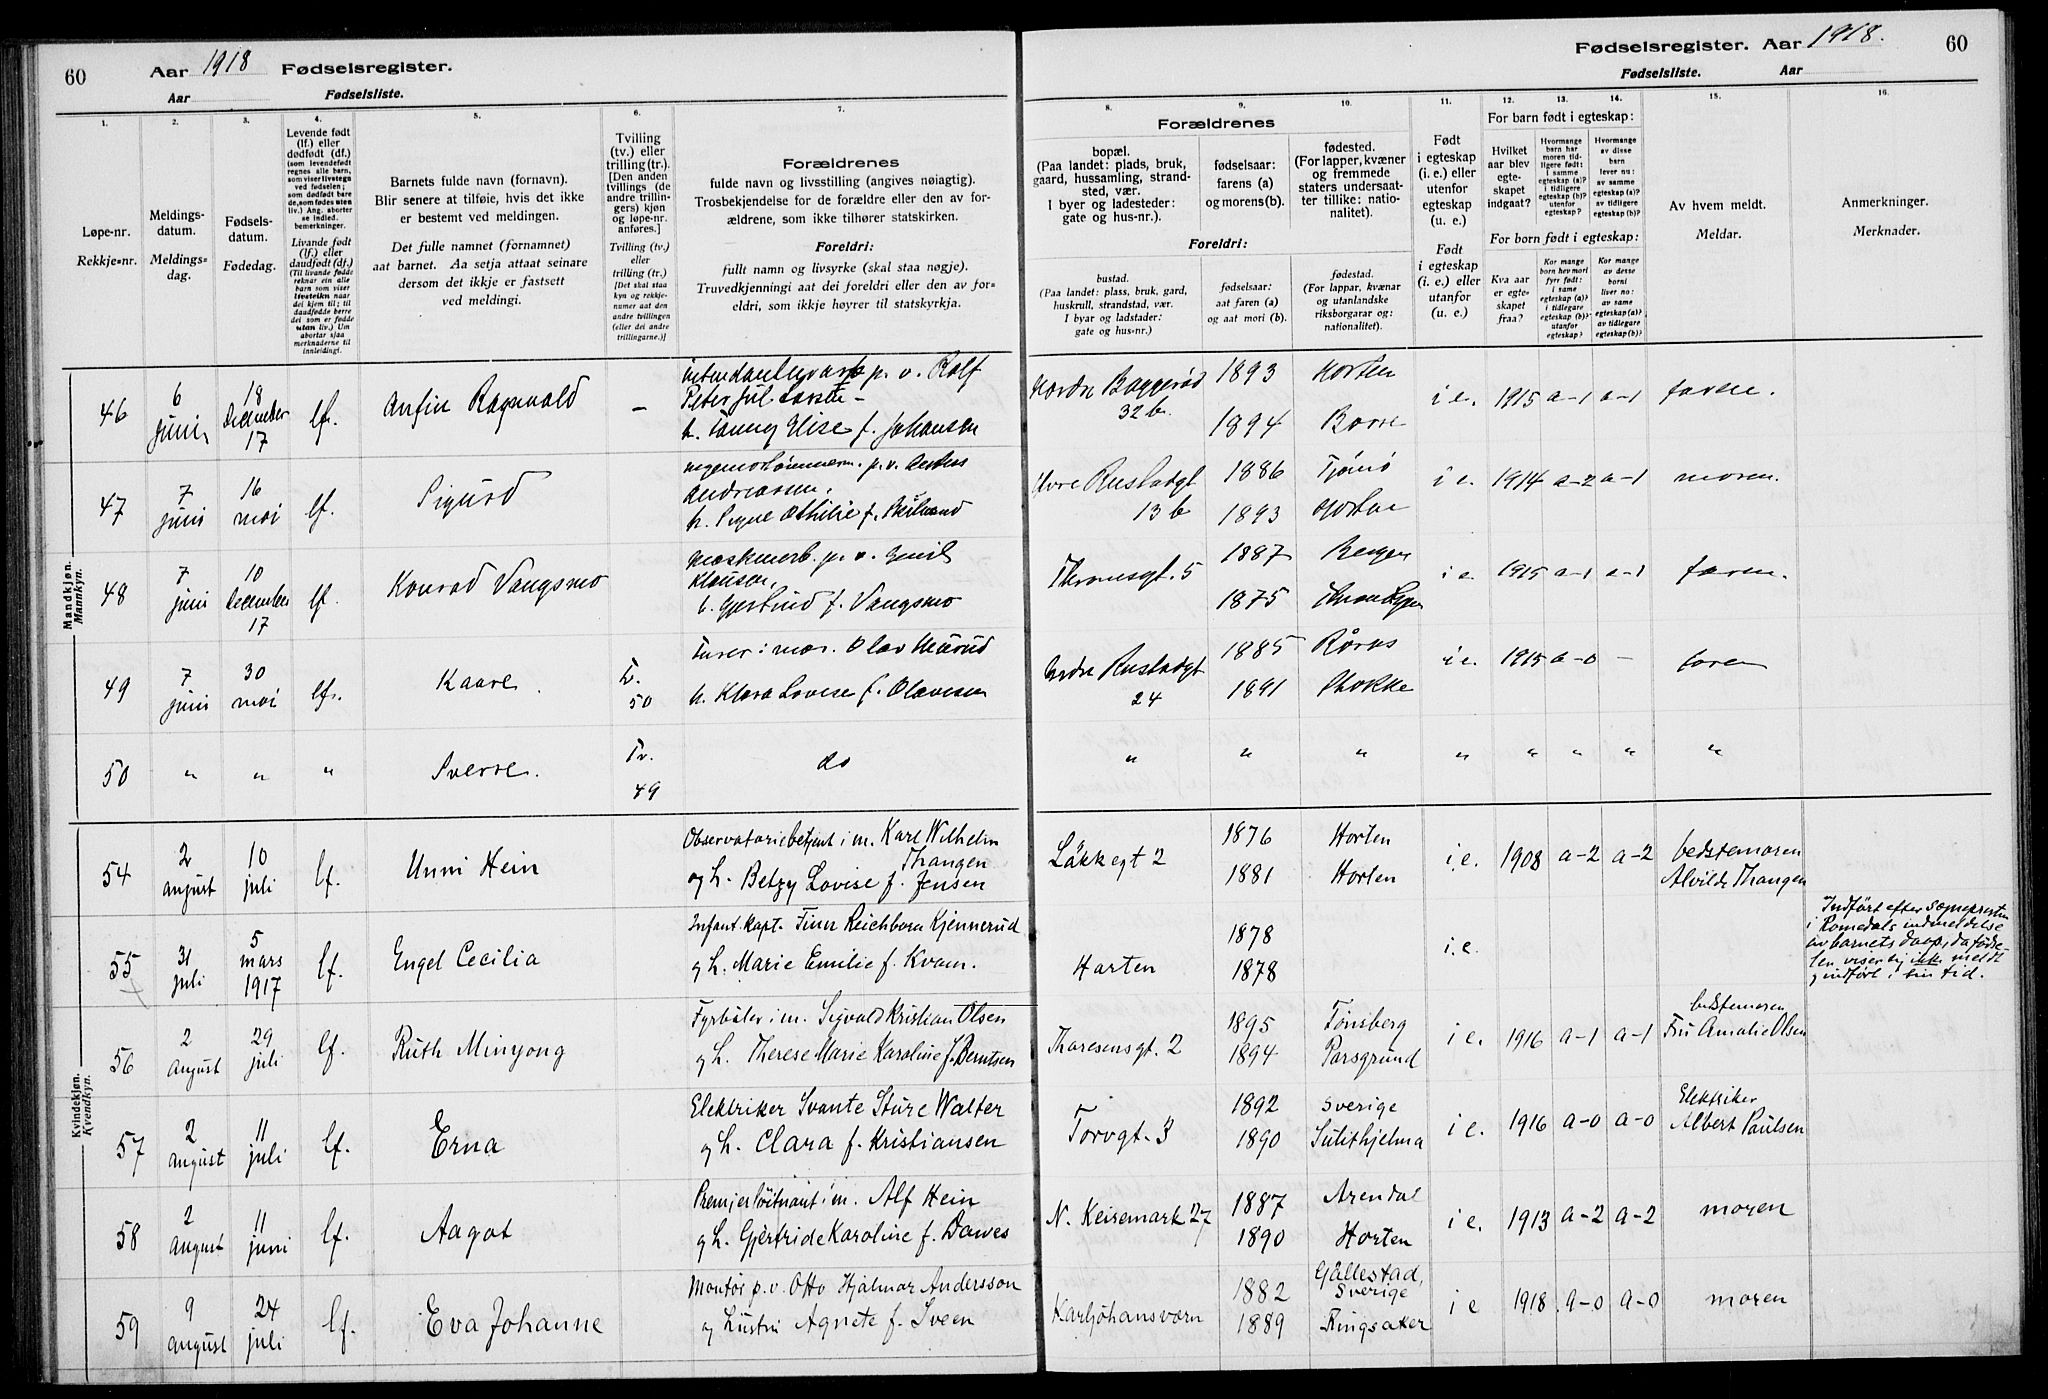 60 Aar 1918 Fødselsregister.
Aar Fødselsliste.
Fødselsregister. Aar 1918. 60
Fødselsliste. Aar
1.
Løpe-nr.
Rekkje-nr.
2.
Meldings-
datum.
Meldings-
dag.
3.
Fødsels-
datum.
Fødedag.
4.
Levende født
(lf.) eller
dødfødt (df.)
(som levendefødt
regnes alle barn,
som viser livstegn
ved fødselen;
som dødfødt bare
de, som fødes uten
liv.) Ang. aborter
se indled.
bemerkninger.
Livande født
(lf.) eller
daudfødt (df.)
(Til livande fødde
reknar ein alle
barn som viser
livsteikn naar
dei kjem til; til
daudfødde berre
dei som er fødde
utan liv.) Um
abortar sjaa
merknaderne til
innleidingi.
5.
Barnets fulde navn (fornavn).
Blir senere at tilføie, hvis det ikke
er bestemt ved meldingen.
Det fulle namnet (fornamnet)
aat barnet. Aa setja attaat seinare
dersom det ikkje er fastsett
ved meldingi.
6.
Tvilling
(tv.) eller
trilling (tr.)
[Den anden
tvillings (de
andre trillin-
gers) kjøn
og løpe-nr.
anføres.]
Tvilling (tv.)
eller
trilling (tr.)
[Det skal staa
kyn og rekkje-
numer aat den
andre tvillingen
(eller dei andre
trillingarne.)]
7.
Forældrenes
fulde navn og livsstilling (angives nøiagtig).
Trosbekjendelse for de forældre eller den av for-
ældrene, som ikke tilhører statskirken.
Foreldri:
fullt namn og livsyrke (skal staa nøgje).
Truvedkjenningi aat dei foreldri eller den av for-
eldri, som ikkje høyrer til statskyrkja.
Forældrenes
8.
bopæl.
(Paa landet: plads, bruk,
gaard, hussamling, strand-
sted, vær.
I byer og ladesteder:
gate og hus-nr.).
Foreldri:
bustad.
(Paa landet: plass, bruk, gard,
huskrull, strandstad, vær.
I byar og ladstader:
gate og hus-nr.)
9.
fødselsaar:
farens (a)
og morens (b).
fødselsaar:
aat faren (a)
og aat mori (b).
10.
fødested.
(For lapper, kvæner
og fremmede
staters undersaat-
ter tillike: natio-
nalitet).
fødestad.
(For lappar, kvænar
og utanlandske
riksborgarar og:
nationalitet).
11.
Født
i egteskap
(i. e.) eller
utenfor
egteskap
(u. e.)
Født
i egteskap
(i. e.) eller
utanfor
(u. e.)
For barn født i egteskap:
12.
Hvilket
aar blev
egte-
skapet
indgaat?
13.
Hvormange
barn har
moren tid-
ligere født:
i samme
egteskap (a)?
i tidligere
egteskap (b)?
utenfor
egteskap?
14.
Hvormange
av disse
barn
lever nu:
av samme
egteskap (a)?
av tidligere
egteskap (b)?
For born født i egteskap:
Kva aar
er egte-
skapet
fraa?
Kor mange
born hev mori
fyrr født:
i same
egteskap (a)?
i tidlegare
egteskap (b)?
utanfor
egteskap?
Kor mange
av desse
borni
liver no:
av same
egteskap (a)?
av tidlegare
egteskap (b)?
15.
Av hvem meldt.
Meldar.
16.
Anmerkninger.
Merknader.
Mandkjøn.
Mannkyn.
46 6 juni 18 December 17 lf. Anfin Ragnvald – p. v. Rolf
Peter Jul Larsen –
h. Fanny Elise f. Johansen
32 b. 1893 Horten
1894 Borre
i e. 1915 a–1 a–1 faren.
47 7 juni 16 mai lf. Sigurd
p. v. Anders
Andreassen.
h. Signe Othilie f.
13 b 1886 Tjømø
1893
i e. 1914 a–2 a–1 moren.
48 7 juni 10 December 17 lf. Konrad Vangsmo
Maskinarb. p. v. Emil
Klausen.
h. Gjertrud f. Vangsmo
Thranesgt. 5 1887 Bergen
1875
i e 1915 a–1 a–1 faren.
49 7 juni 30 mai lf. Kaare. Tv. 50
Olav
h. Klara Lovise f. Olavesen
24 1885 Røros
1891 Stokke
i e. 1915 a–0 – faren
50 " " " Sverre. Tv. 49 do
" " " " " " " "
Kvindekjøn.
Kvendkyn.
54 2 august 10 juli lf. Unni Hein
Observatoriebetjent i m. Karl Wilhelm
Thangen
og h. Betzy Lovise f. Jensen
Løkkegt 2 1876 Horten
1881 Horten
i. e. 1908 a–2 a–2 bedstemoren
Alvilde Thangen
55 31 juli 5 mars 1917 lf. Engel Cecilia
Infant.kapt. Finn Reichborn Kjennerud
g h. Marie Emilie f. Kvam.
Horten 1878
1878
i. e.
Indført efter Sognepresten
i Romedals indmeldelse
av barnets daap, da fødse-
len viser sig ikke meldt
g indført i sin tid.
56 2 August 29 juli lf. Ruth Minyong
Fyrbøter i m. Sigvald Kristian Olsen
g h. Therese Marie Karoline f. Berntsen
Thoresensgt. 2 1895 Tønsberg
1894 Porsgrund
i e. 1916 a–1 a–1 bedstemoren
Fru Amalie Olsen
57 2 august 11 juli lf. Erna
Elektriker Svante Sture Walter
g h. Clara f. Kristiansen
Torvgt. 3 1892 Sverige
1890 Sulithjelma
i e. 1916 a–0 a–0 Elektriker
Albert Paulsen
58 2 august 11 juni lf. Aagot
Premjerløitnant i m. Alf Hein
g h. Gjertride Karoline f. Dawes
N. Keisemark 27 1887 Arendal
1890 Horten
i e. 1913 a–2 a–2 moren
59 9 august 24 juli lf. Eva Johanne
Montør p. v. Otto Hjalmar Andersson
og hustru Agnete f. Sveen
Karljohansvern 1882 Gållestad,
Sverige
1889 Ringsaker
i e 1918 a–0 a–0 moren